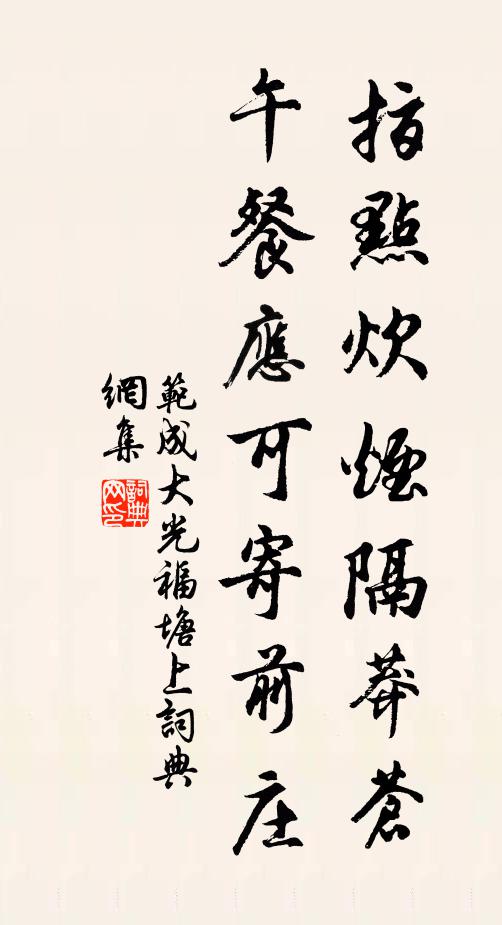 指點炊煙隔莽蒼
午餐應可寄前庄
範成大光福塘上詞典
網集
詞典網印